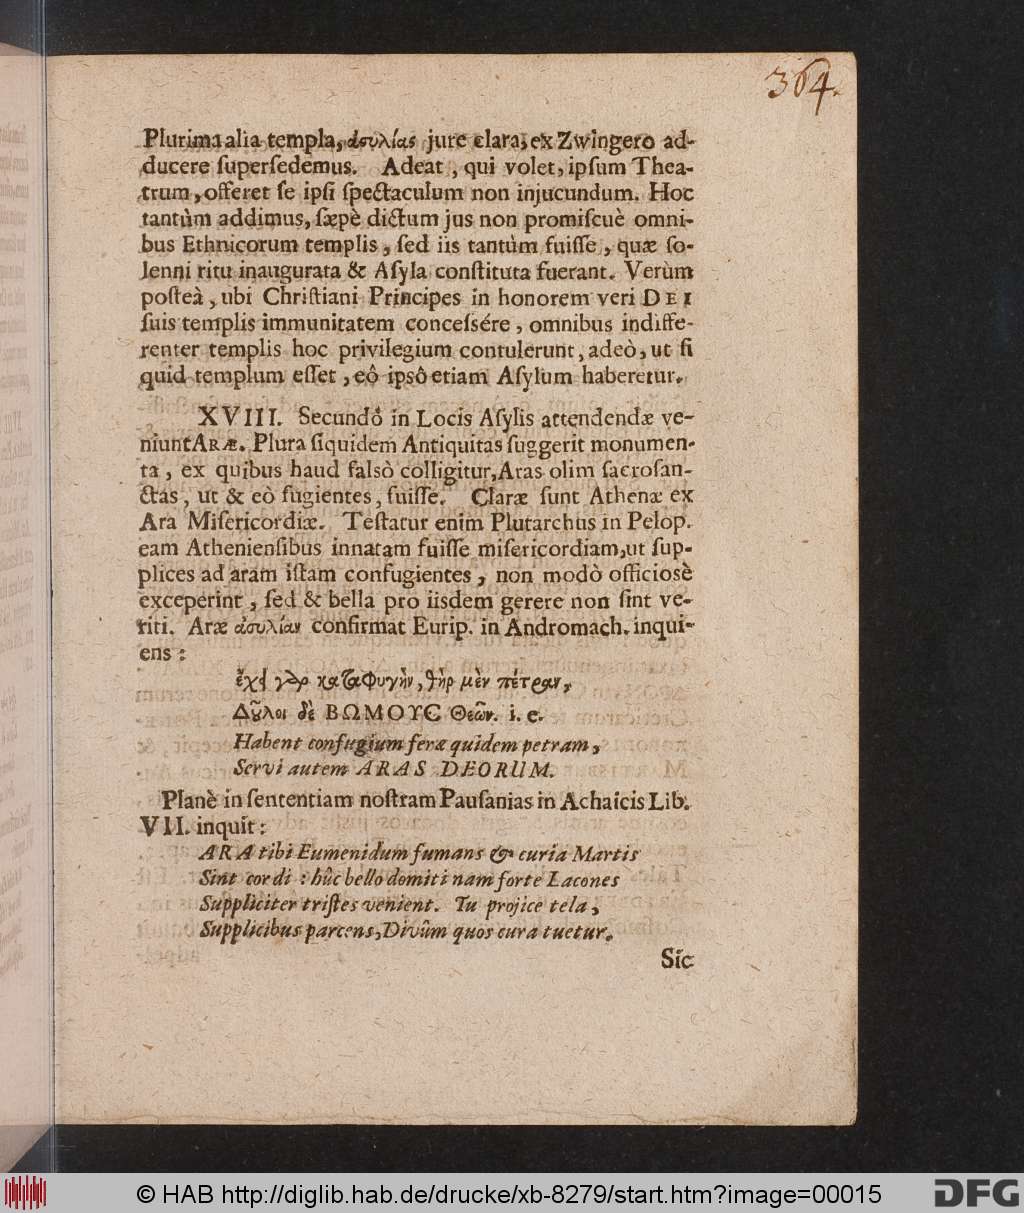 364.
Plurima alia templa, ἀσυλίας jure clara, ex Zwingero ad-
ducere ſuperſedemus. Adeat, qui volet, ipſum Thea-
trum, offeret ſe ipſi ſpectaculum non injucundum. Hoc
tantùm addimus, ſæpè dictum jus non promiſcuè omni-
bus Ethnicorum templis, ſed iis tantùm fuiſſe, quæ ſo-
lenni ritu inaugurata & Aſyla conſtituta fuerant. Verùm
poſteà, ubi Chriſtiani Principes in honorem veri DEI
ſuis templis immunitatem conceſsére, omnibus indiffe-
renter templis hoc privilegium contulerunt, adeò, ut ſi
quid templum eſſet, eô ipsô etiam Aſylum haberetur.
XVIII. Secundô in Locis Aſylis attendendæ ve-
niunt ARÆ. Plura ſiquidem Antiquitas ſuggerit monumen-
ta, ex quibus haud falsò colligitur, Aras olim ſacroſan-
ctas, ut & eò fugientes, fuiſſe. Claræ ſunt Athenæ ex
Ara Miſericordiæ. Teſtatur enim Plutarchus in Pelop.
eam Athenienſibus innatam fuiſſe miſericordiam, ut ſup-
plices ad aram iſtam confugientes, non modò officiosè
exceperint, ſed & bella pro iisdem gerere non ſint ve-
riti. Aræ ἀσυλίαν confirmat Eurip. in Andromach. inqui-
ens:
ἔχει γὰρ καταφυγὴν, θὴρ μὲν πέτραν,
Δοῦλοι δὲ ΒΩΜΟΥΣ Θεῶν. i. e.
Habent confugium feræ quidem petram,
Servi autem ARAS DEORUM.
Planè in ſententiam noſtram Pauſanias in Achaicis Lib.
VII. inquit:
ARA tibi Eumenidum fumans & curia Martis
Sint cordi: hûc bello domiti nam forte Lacones
Suppliciter triſtes venient. Tu projice tela,
Supplicibus parcens, Divûm quos cura tuetur.
Sic
© HAB http://diglib.hab.de/drucke/xb-8279/start.htm?image=00015
DFG